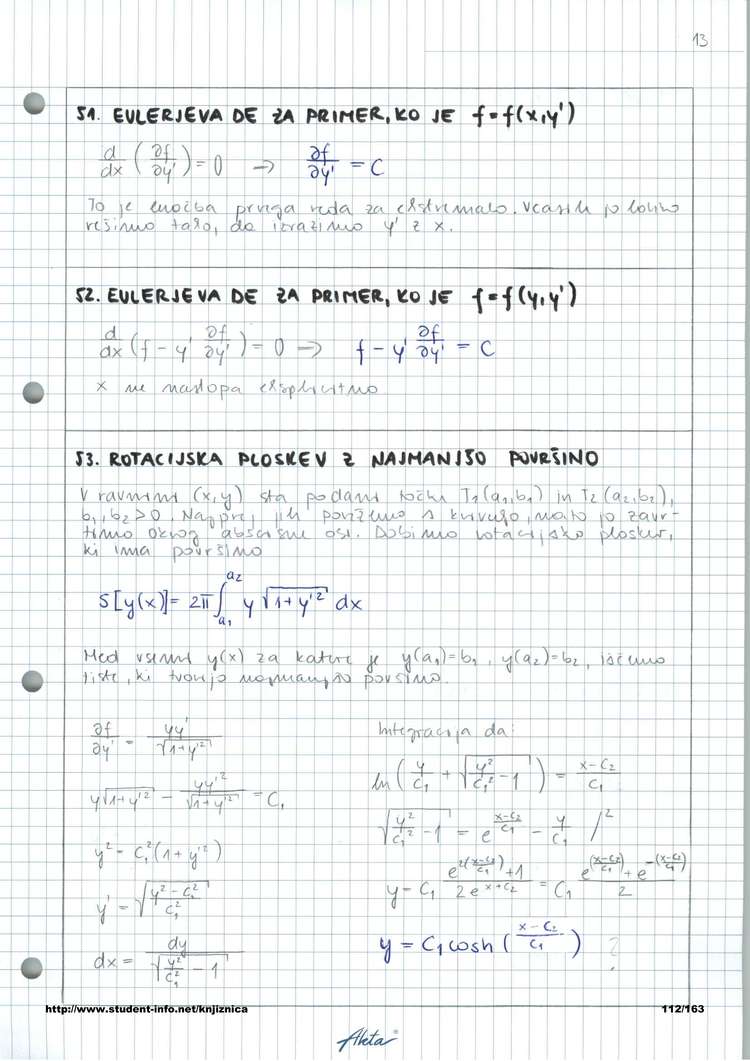 13
51. EULERJEVA DE ZA PRIMER, KO JE f=f(x,y')
d/dx (∂f/∂y') = 0 → ∂f/∂y' = C
To je enačba prvega reda za ekstremalo. Včasih jo lahko
rešimo tako, da izrazimo y' z x.
52. EULERJEVA DE ZA PRIMER, KO JE f=f(y,y')
d/dx (f - y' ∂f/∂y') = 0 → f - y' ∂f/∂y' = C
x ne nastopa eksplicitno
53. ROTACIJSKA PLOSKEV Z NAJMANJŠO POVRŠINO
V ravnini (x,y) sta podani točki T₁(a₁,b₁) in T₂(a₂,b₂),
b₁,b₂>0. Najprej jih povežemo s krivuljo, nato jo zavr-
timo okrog abscisne osi. Dobimo rotacijsko ploskev,
ki ima površino
S[y(x)] = 2π ∫_{a₁}^{a₂} y √(1+y'²) dx
Med vsemi y(x) za katere je y(a₁)=b₁, y(a₂)=b₂, iščemo
tiste, ki tvorijo najmanjšo površino.
∂f/∂y' = yy'/√(1+y'²)
y√(1+y'²) - yy'²/√(1+y'²) = C₁
y² = C₁²(1+y'²)
y' = √((y²-C₁²)/C₁²)
dx = dy/√(y²/C₁² - 1)
Integracija da:
ln(y/C₁ + √(y²/C₁² - 1)) = (x-C₂)/C₁
√(y²/C₁² - 1) = e^((x-C₂)/C₁) - y/C₁ /²
y = C₁ (e^(2((x-C₂)/C₁)) + 1)/(2e^(x+C₂)) = C₁ (e^((x-C₂)/C₁) + e^(-((x-C₂)/C₁)))/2
y = C₁ cosh((x-C₂)/C₁) ?
http://www.student-info.net/knjiznica
112/163
Akta